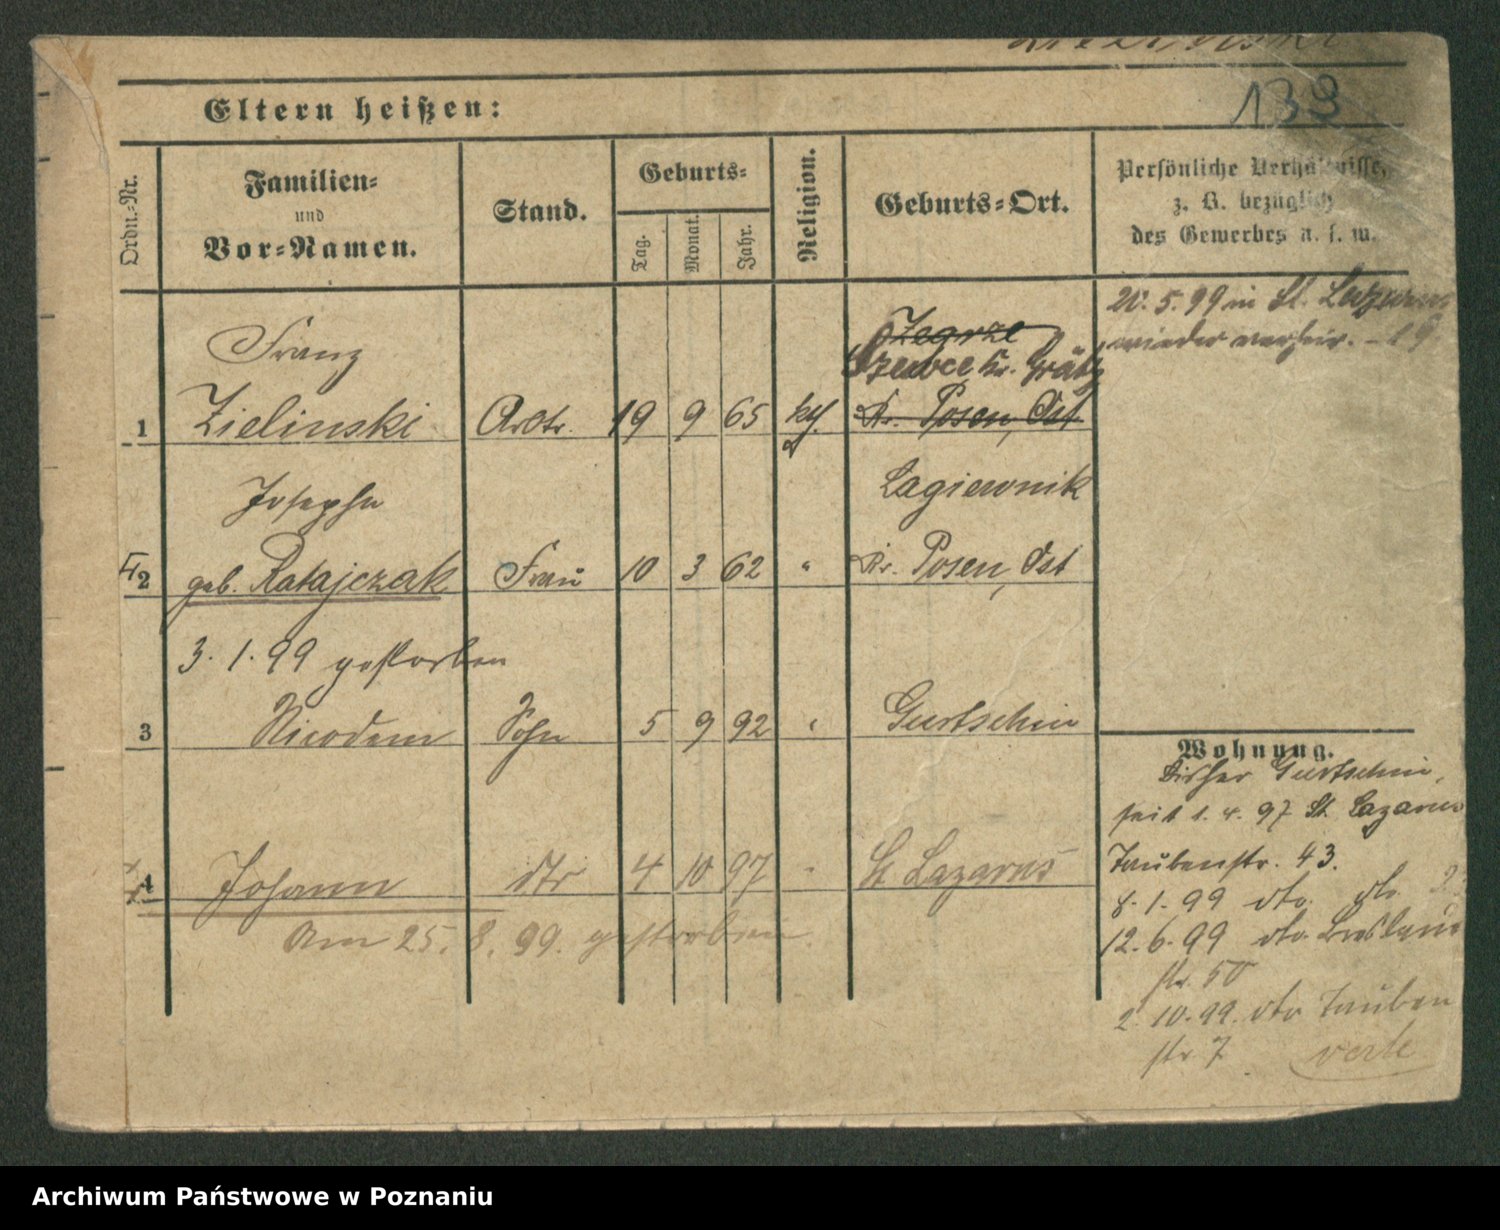 133
Eltern heißen:
Ordn.-Nr.
Familien-
und
Vor-Namen.
Stand.
Geburts-
Tag.
Monat.
Jahr.
Religion.
Geburts-Ort.
Persönliche Verhältnisse,
z. B. bezüglich
des Gewerbes u. s. w.
20. 5. 99 in St. Lazarus
wieder verheir.
Franz
Zegrze
Szewce Kr. Grätz
1 Zielinski Arbtr. 19 9 65 kth. Kr. Posen, Ost
Josepha
Lagiewnik
2 geb. Ratajczak Frau 10 3 62 " Kr. Posen, Ost
3. 1. 99 gestorben
3 Nicodem Sohn 5 9 92 " Gurtschin
4 Johann dto 4 10 97 " St Lazarus
Am 25. 8. 99. gestorben.
Wohnung.
Bisher Gurtschin,
seit 1. 4. 97 St. Lazarus
Taubenstr. 43.
8. 1. 99 dto. dto.
12. 6. 99 dto. Breslauer
str. 50
2. 10. 99. dto Tauben
str 7
verte
Archiwum Państwowe w Poznaniu